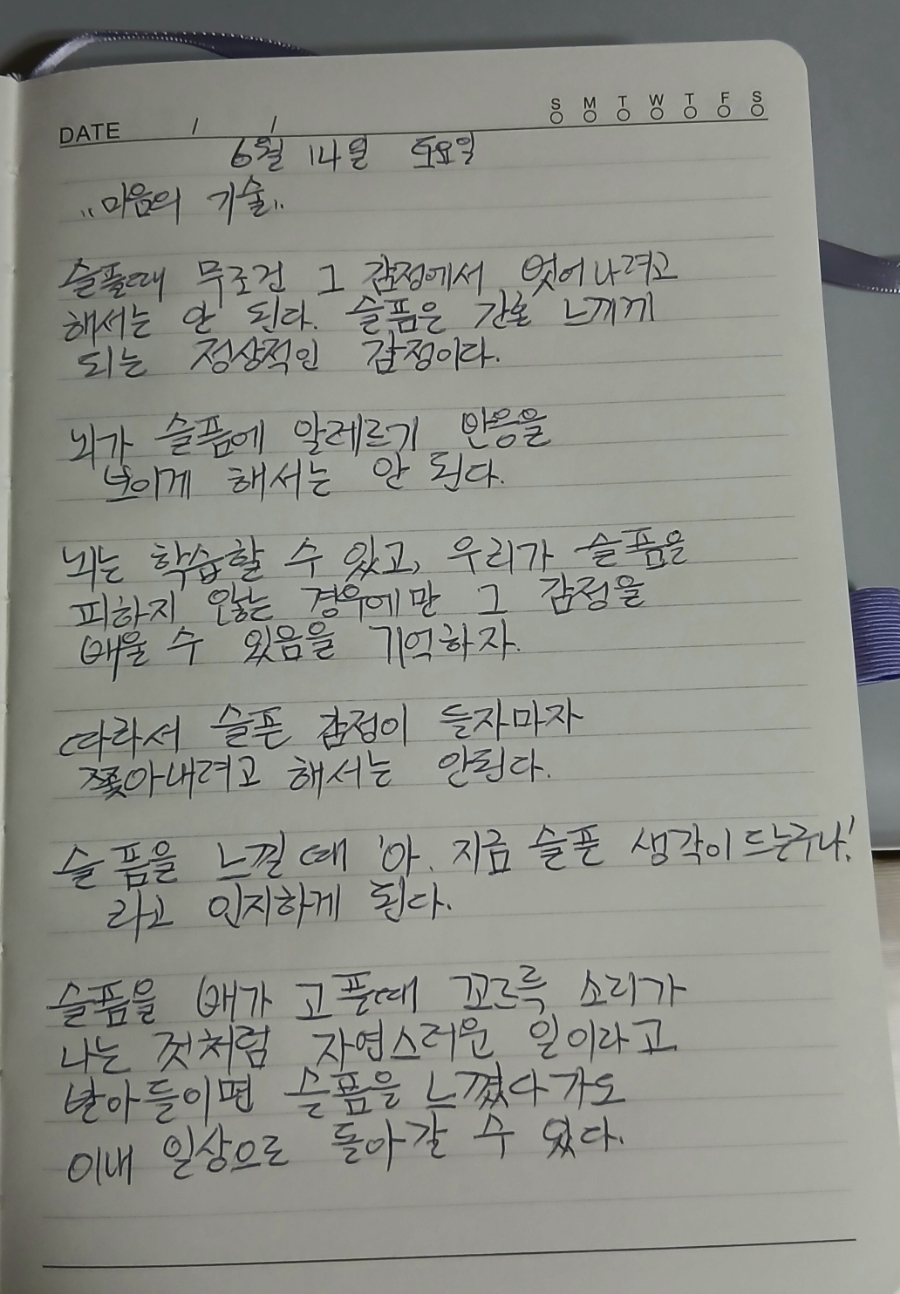 DATE / /
S M T W T F S
6월 14일 토요일
"마음의 기술"
슬플때 무조건 그 감정에서 벗어나려고
해서는 안 된다. 슬픔은 간혹 느끼게
되는 정상적인 감정이다.
뇌가 슬픔에 알레르기 반응을
보이게 해서는 안 된다.
뇌는 학습할 수 있고, 우리가 슬픔을
피하지 않는 경우에만 그 감정을
배울 수 있음을 기억하자.
따라서 슬픈 감정이 들자마자
쫓아내려고 해서는 안된다.
슬픔을 느낄 때 '아. 지금 슬픈 생각이 드는구나!'
라고 인지하게 된다.
슬픔을 배가 고플때 꼬르륵 소리가
나는 것처럼 자연스러운 일이라고
받아들이면 슬픔을 느꼈다가도
이내 일상으로 돌아갈 수 있다.